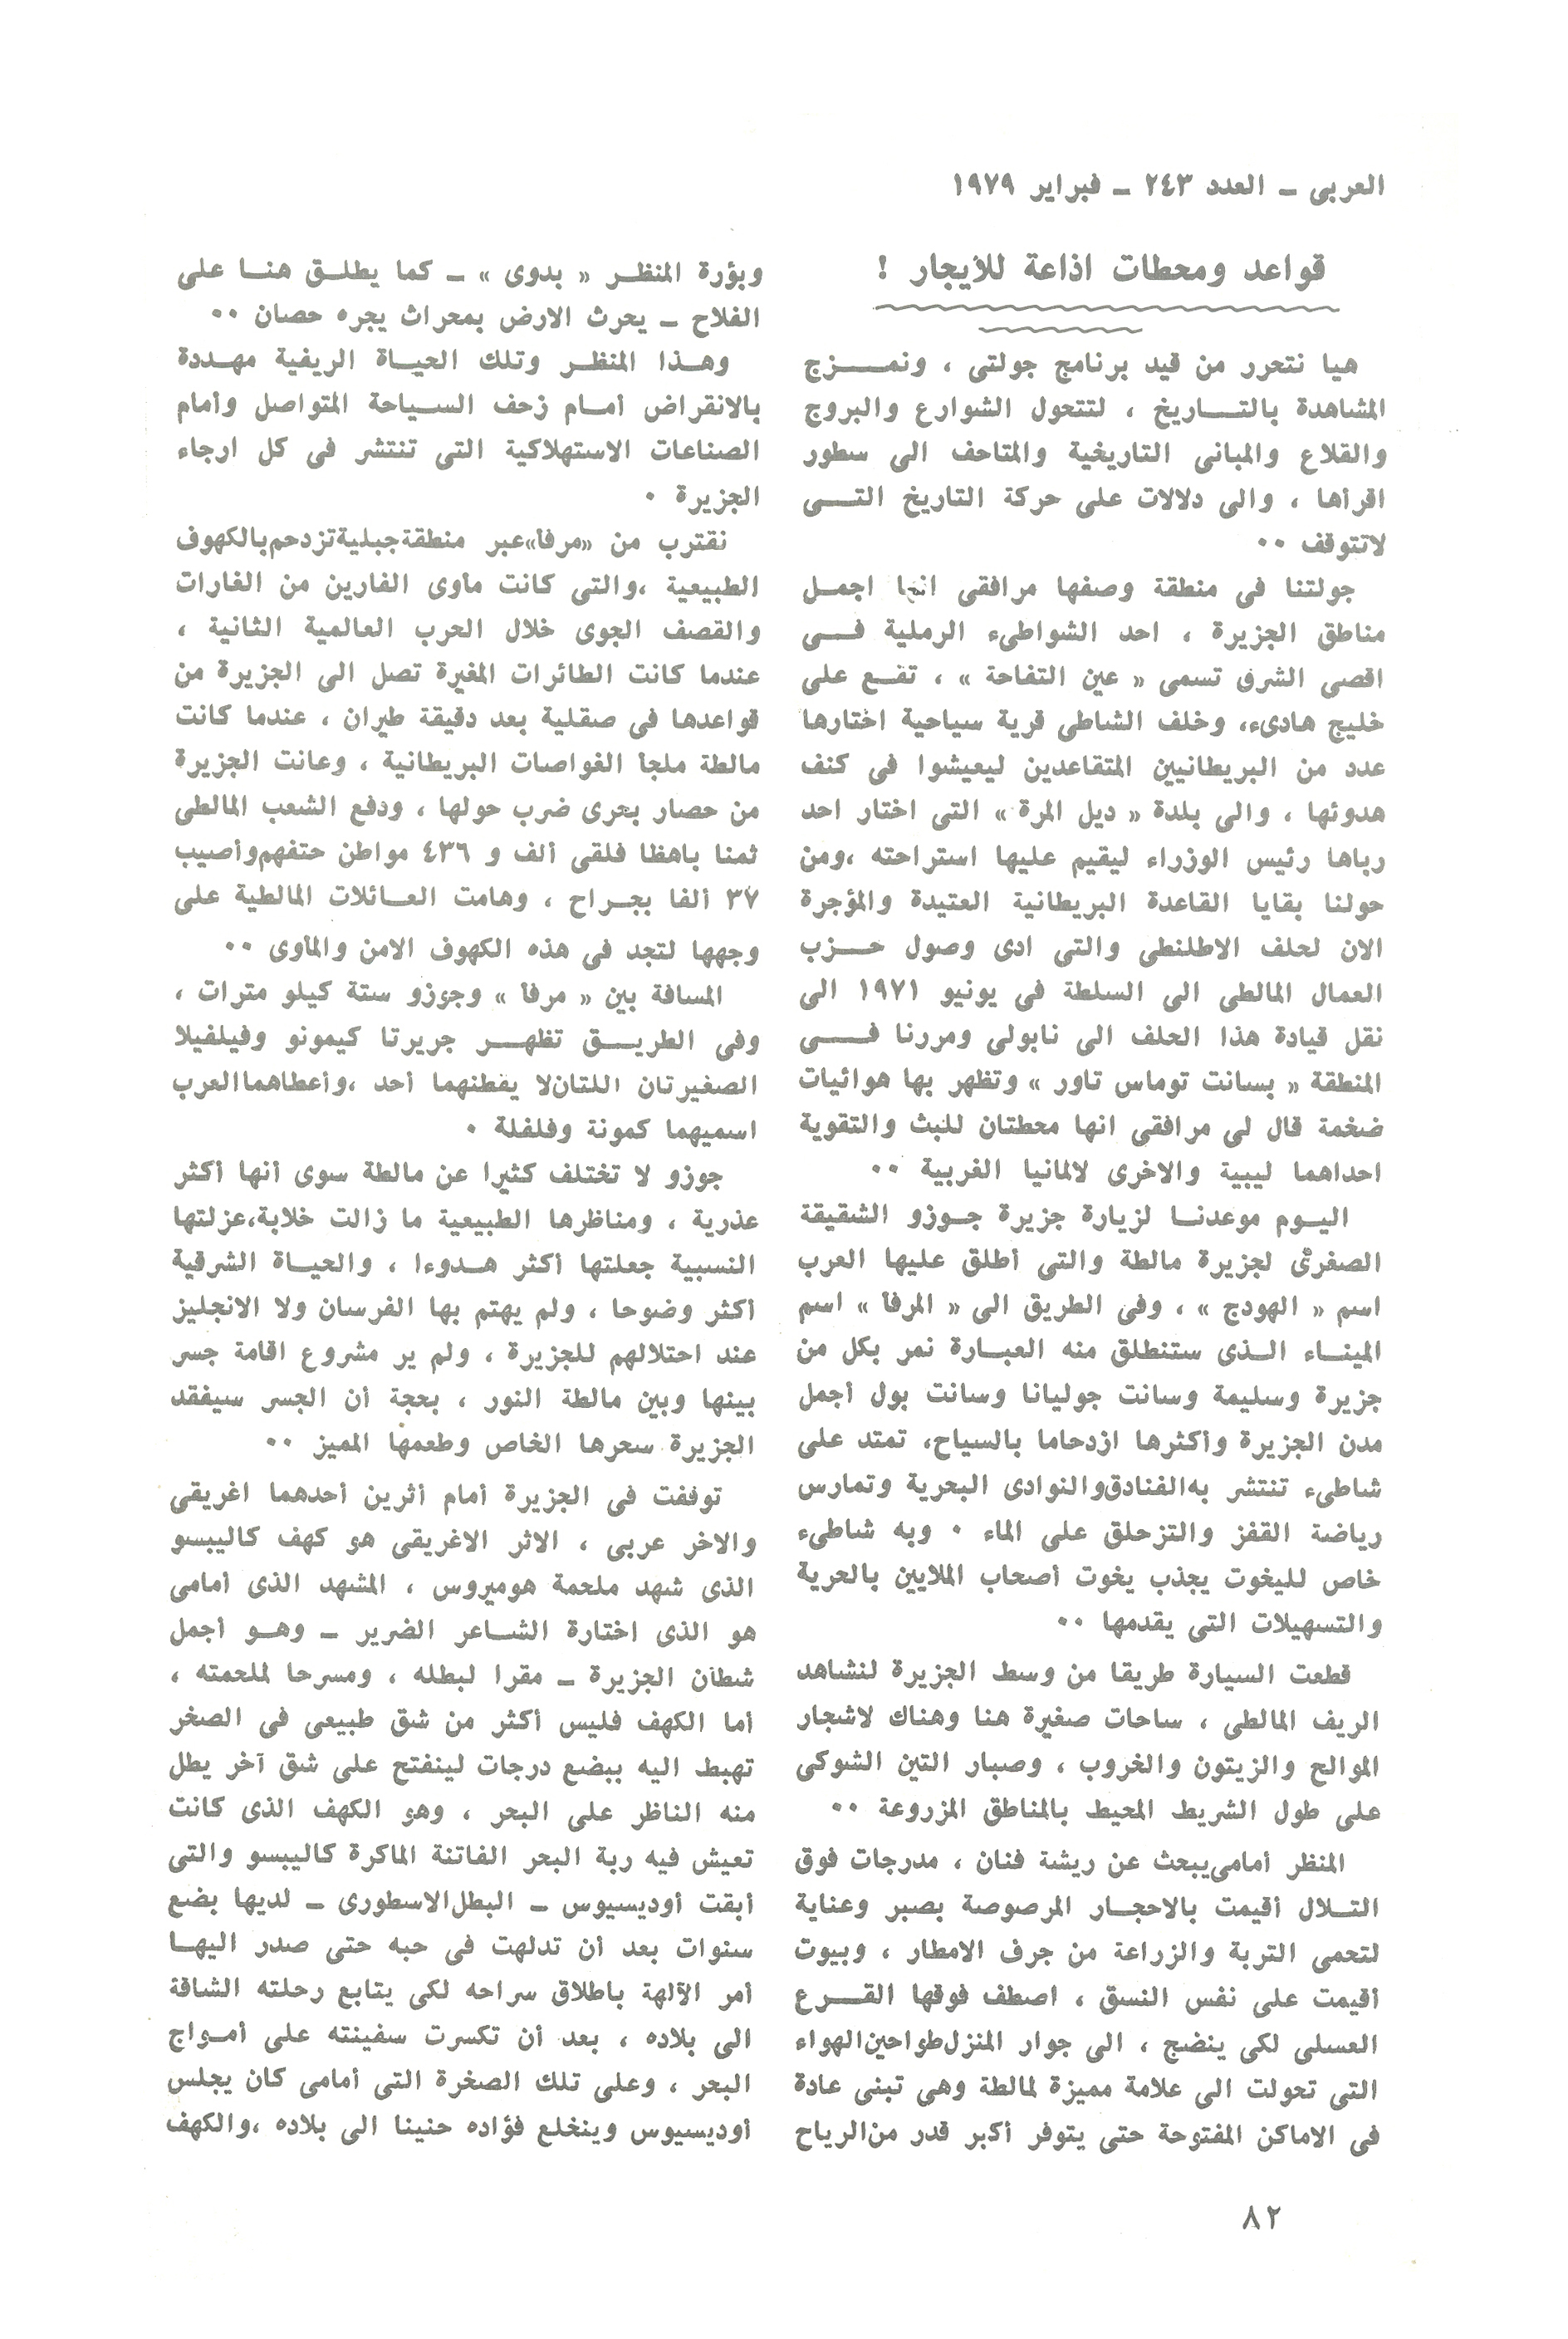 العربى ــ العدد ٢٤٣ ــ فبراير ١٩٧٩
قواعد ومحطات اذاعة للأيجار !
هيا نتحرر من قيد برنامج جولتى ، ونمــزج
المشاهدة بالتــاريخ ، لتتحول الشوارع والبروج
والقلاع والمبانى التاريخية والمتاحف الى سطور
اقرأها ، والى دلالات على حركة التاريخ التــى
لاتتوقف ٠٠
جولتنا فى منطقة وصفها مرافقى انها اجمـل
مناطق الجزيرة ، احد الشواطىء الرملية فــى
اقصى الشرق تسمى « عين التفاحة » ، تقـع على
خليج هادىء، وخلف الشاطى قرية سياحية اختارها
عدد من البريطانيين المتقاعدين ليعيشوا فى كنف
هدوئها ، والى بلدة « ديل المرة » التى اختار احد
رباها رئيس الوزراء ليقيم عليها استراحته ،ومن
حولنا بقايا القاعدة البريطانية العتيدة والمؤجرة
الان لحلف الاطلنطى والتى ادى وصول حــزب
العمال المالطى الى السلطة فى يونيو ١٩٧١ الى
نقل قيادة هذا الحلف الى نابولى ومررنا فــى
المنطقة « بسانت توماس تاور » وتظهر بها هوائيات
ضخمة قال لى مرافقى انها محطتان للبث والتقوية
احداهما ليبية والاخرى لالمانيا الغربية ٠٠
اليـوم موعدنـا لزيارة جزيرة جـوزو الشقيقة
الصغرى لجزيرة مالطة والتى أطلق عليها العرب
اسم « الهودج » ، وفى الطريق الى « المرفأ » اسم
المينـاء الـذى ستنطلق منه العبـارة نمر بكل من
جزيرة وسليمة وسانت جوليانا وسانت بول أجمل
مدن الجزيرة وأكثرها ازدحاما بالسياح، تمتد على
شاطىء تنتشر به الفنادق والنوادى البحرية وتمارس
رياضة القفز والتزحلق على الماء ٠ وبه شاطىء
خاص لليغوت يجذب يغوت أصحاب الملايين بالحرية
والتسهيلات التى يقدمها ٠٠
قطعت السيارة طريقا من وسط الجزيرة لنشاهد
الريف المالطى ، ساحات صغيرة هنا وهناك لاشجار
الموالح والزيتون والخروب ، وصبار التين الشوكى
على طول الشريط المحيط بالمناطق المزروعة ٠٠
المنظر أمامى يبحث عن ريشة فنان ، مدرجات فوق
التـلال أقيمت بالاحجـار المرصوصة بصبر وعناية
لتحمى التربة والزراعة من جرف الامطار ، وبيوت
أقيمت على نفس النسق ، اصطف فوقها القــرع
العسلى لكى ينضج ، الى جوار المنزل طواحين الهواء
التى تحولت الى علامة مميزة لمالطة وهى تبنى عادة
فى الاماكن المفتوحة حتى يتوفر أكبر قدر من الرياح
وبؤرة المنظـر « بدوى » ــ كما يطلـق هنـا على
الفلاح ــ يحرث الارض بمحراث يجره حصان ٠٠
وهـذا المنظـر وتلك الحيـاة الريفية مهـددة
بالانقراض أمـام زحف السـياحة المتواصل وأمام
الصناعات الاستهلاكية التى تنتشر فى كل ارجاء
الجزيرة ٠
نقترب من «مرفأ» عبر منطقة جبلية تزدحم بالكهوف
الطبيعية ،والتى كانت مأوى الفارين من الغارات
والقصف الجوى خلال الحرب العالمية الثانية ،
عندما كانت الطائرات المغيرة تصل الى الجزيرة من
قواعدها فى صقلية بعد دقيقة طيران ، عندما كانت
مالطة ملجأ الغواصات البريطانية ، وعانت الجزيرة
من حصار بحرى ضرب حولها ، ودفع الشعب المالطى
ثمنا باهظا فلقى ألف و ٤٣٦ مواطن حتفهم وأصيب
٣٧ ألفا بجـراح ، وهامت العـائلات المالطية على
وجهها لتجد فى هذه الكهوف الامن والمأوى ٠٠
المسافة بين « مرفأ » وجوزو ستة كيلو مترات ،
وفى الطريـق تظهـر جريرتا كيمونو وفيلفيلا
الصغيرتان اللتان لا يقطنهما أحد ،وأعطاهما العرب
اسميهما كمونة وفلفلة ٠
جوزو لا تختلف كثيرا عن مالطة سوى أنها أكثر
عذرية ، ومناظرها الطبيعية ما زالت خلابة،عزلتها
النسبية جعلتها أكثر هـدوءا ، والحيـاة الشرقية
أكثر وضوحا ، ولم يهتم بها الفرسان ولا الانجليز
عند احتلالهم للجزيرة ، ولم ير مشروع اقامة جسر
بينها وبين مالطة النور ، بحجة أن الجسر سيفقد
الجزيرة سحرها الخاص وطعمها المميز ٠٠
توقفت فى الجزيرة أمام أثرين أحدهما اغريقى
والاخر عربى ، الاثر الاغريقى هو كهف كاليبسو
الذى شهد ملحمة هوميروس ، المشهد الذى أمامى
هو الذى اختارة الشـاعر الضرير ــ وهـو أجمل
شطآن الجزيرة ــ مقرا لبطله ، ومسرحا لملحمته ،
أما الكهف فليس أكثر من شق طبيعى فى الصخر
تهبط اليه ببضع درجات لينفتح على شق آخر يطل
منه الناظر على البحر ، وهو الكهف الذى كانت
تعيش فيه ربة البحر الفاتنة الماكرة كاليبسو والتى
أبقت أوديسيوس ــ البطل الاسطورى ــ لديها بضع
سنوات بعد أن تدلهت فى حبه حتى صدر اليهـا
أمر الآلهة باطلاق سراحه لكى يتابع رحلته الشاقة
الى بلاده ، بعد أن تكسرت سفينته على أمـواج
البحر ، وعلى تلك الصخرة التى أمامى كان يجلس
أوديسيوس وينخلع فؤاده حنينا الى بلاده ،والكهف
٨٢